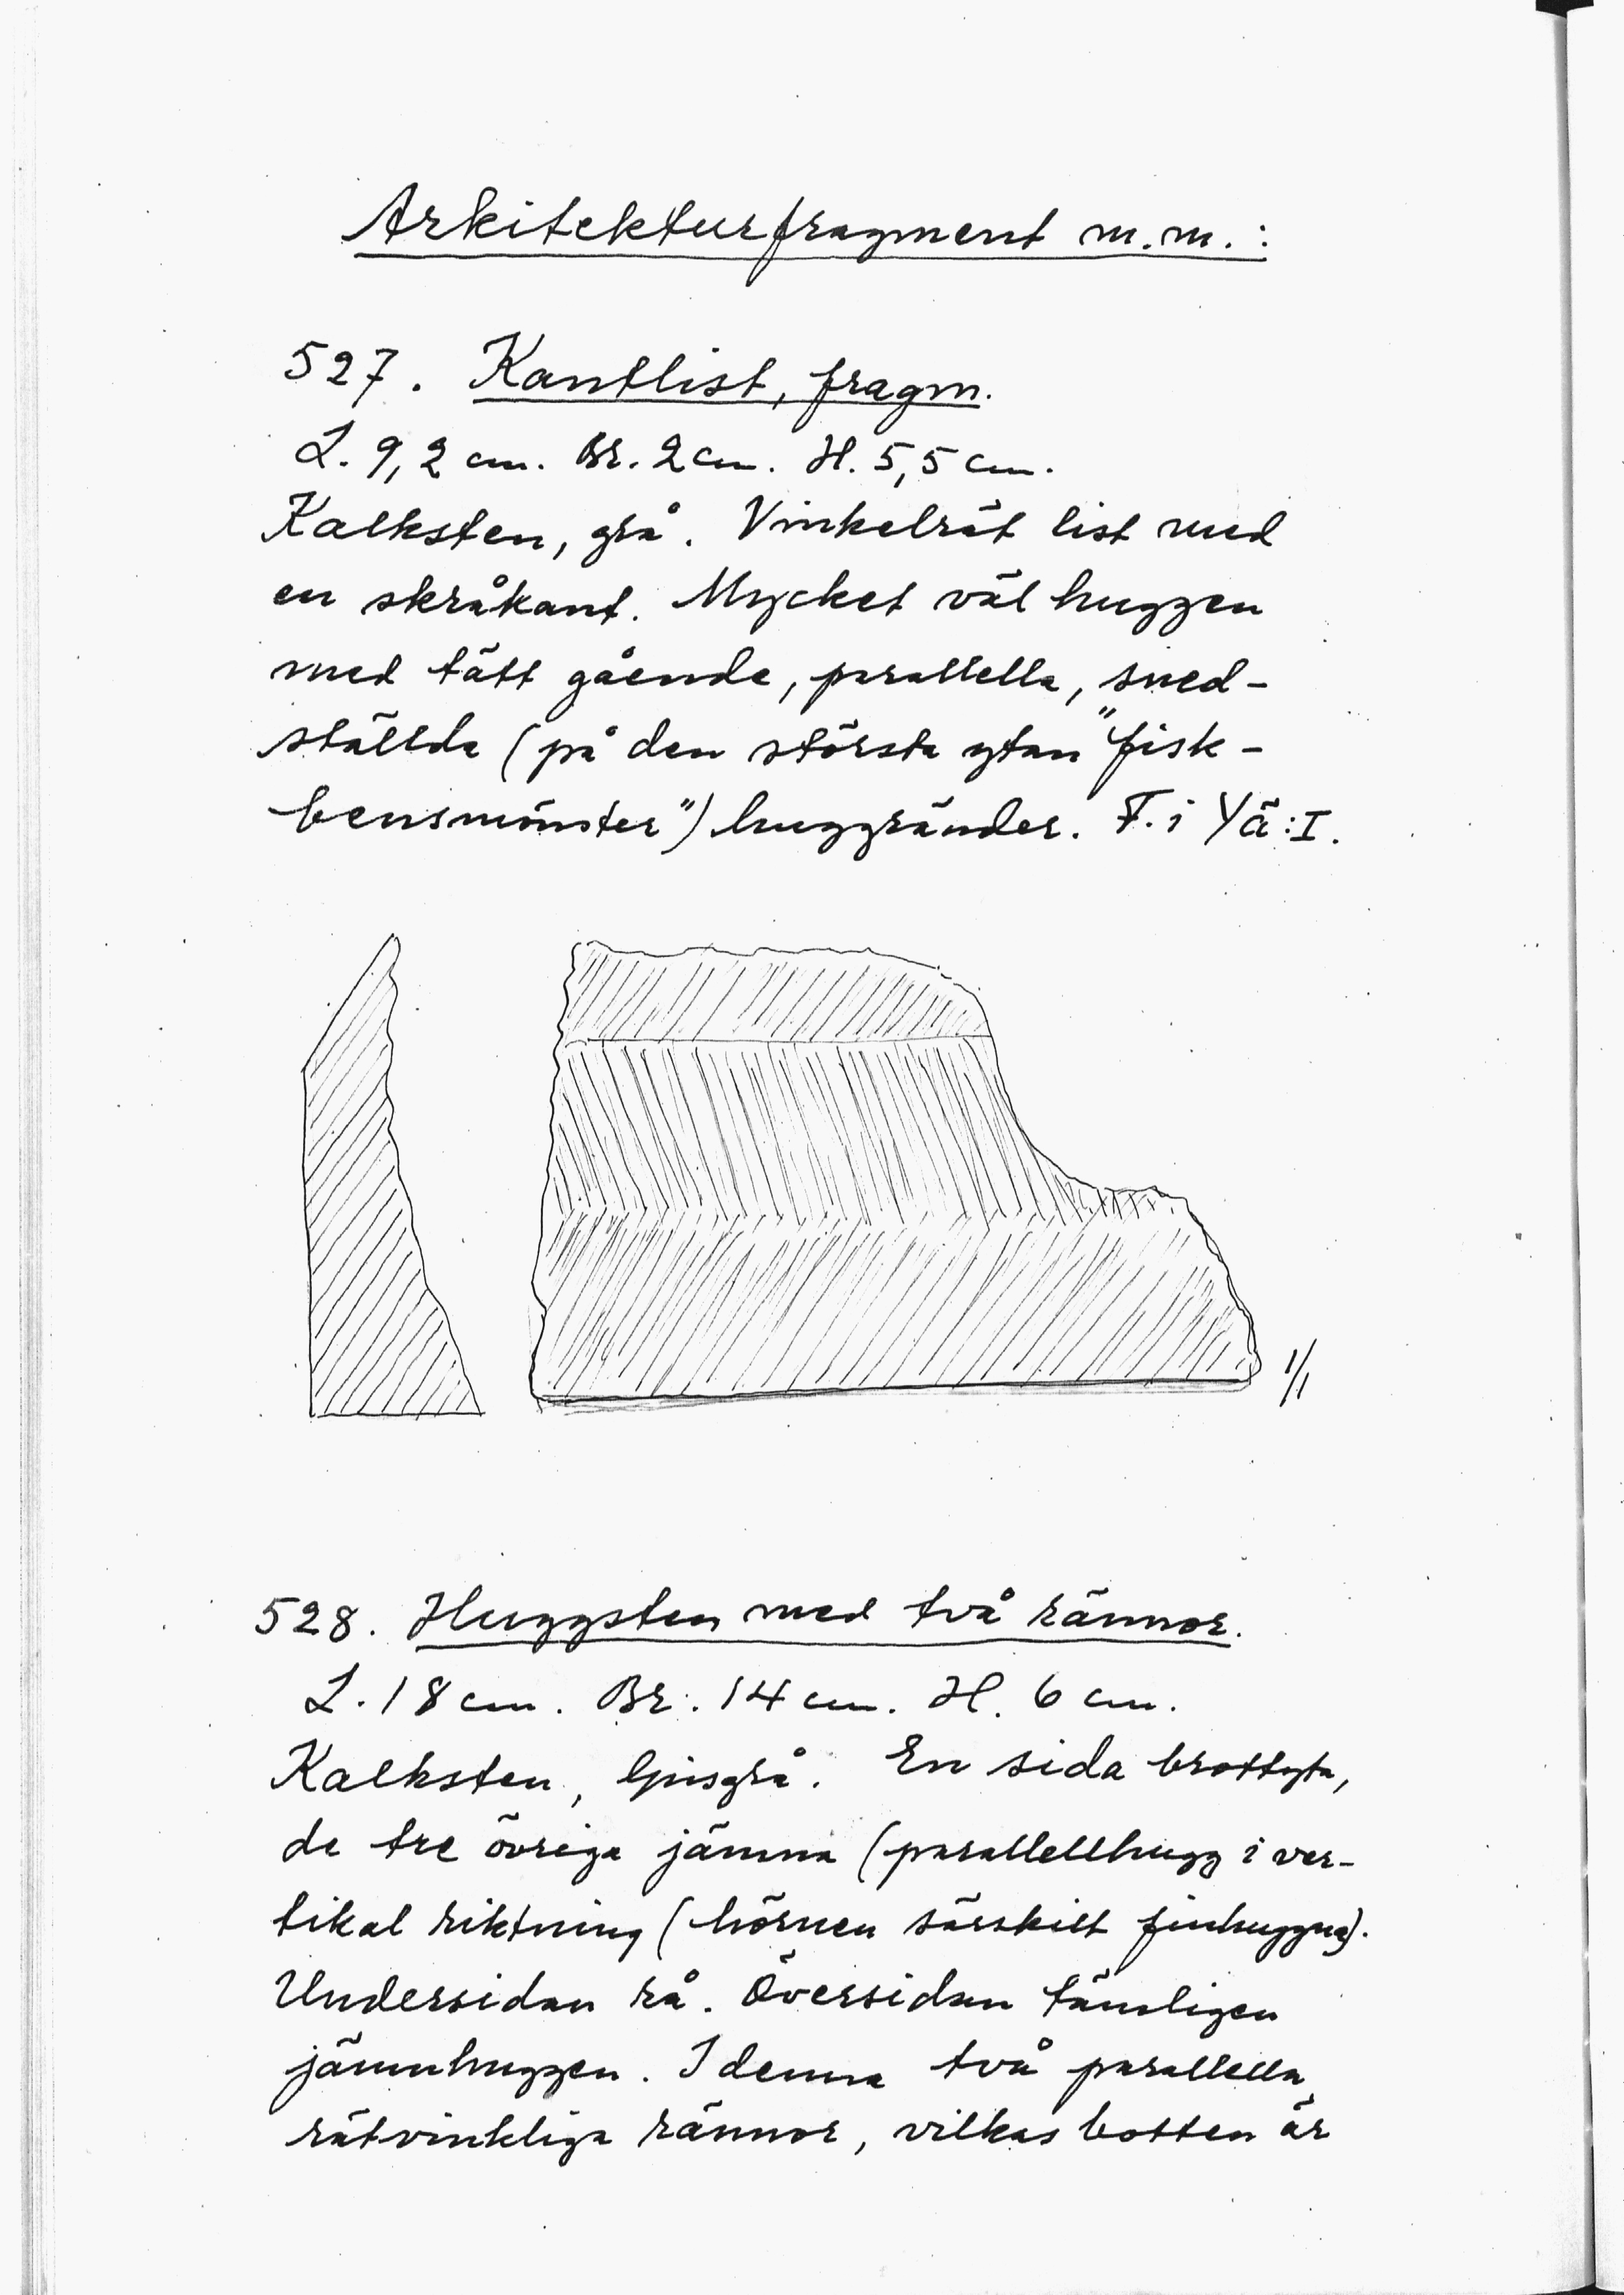 Arkitekturfragment m.m.:
527. Kantlist, fragm.
L. 9,2 cm. Br. 2 cm. H. 5,5 cm.
Kalksten, grå. Vinkelrät list med
en skråkant. Mycket väl huggen
med tätt gående, parallella, sned-
ställda (på den största ytan "fisk-
bensmönster") huggränder. F. i Yä:I.
1/1
528. Huggsten med två rännor.
L. 18 cm. Br. 14 cm. H. 6 cm.
Kalksten, ljusgrå. En sida brottyta,
de tre övriga jämna (parallellhugg i ver-
tikal riktning (hörnen särskilt finhuggna).
Undersidan rå. Översidan tämligen
jämnhuggen. I denna två parallella,
rätvinkliga rännor, vilkas botten är